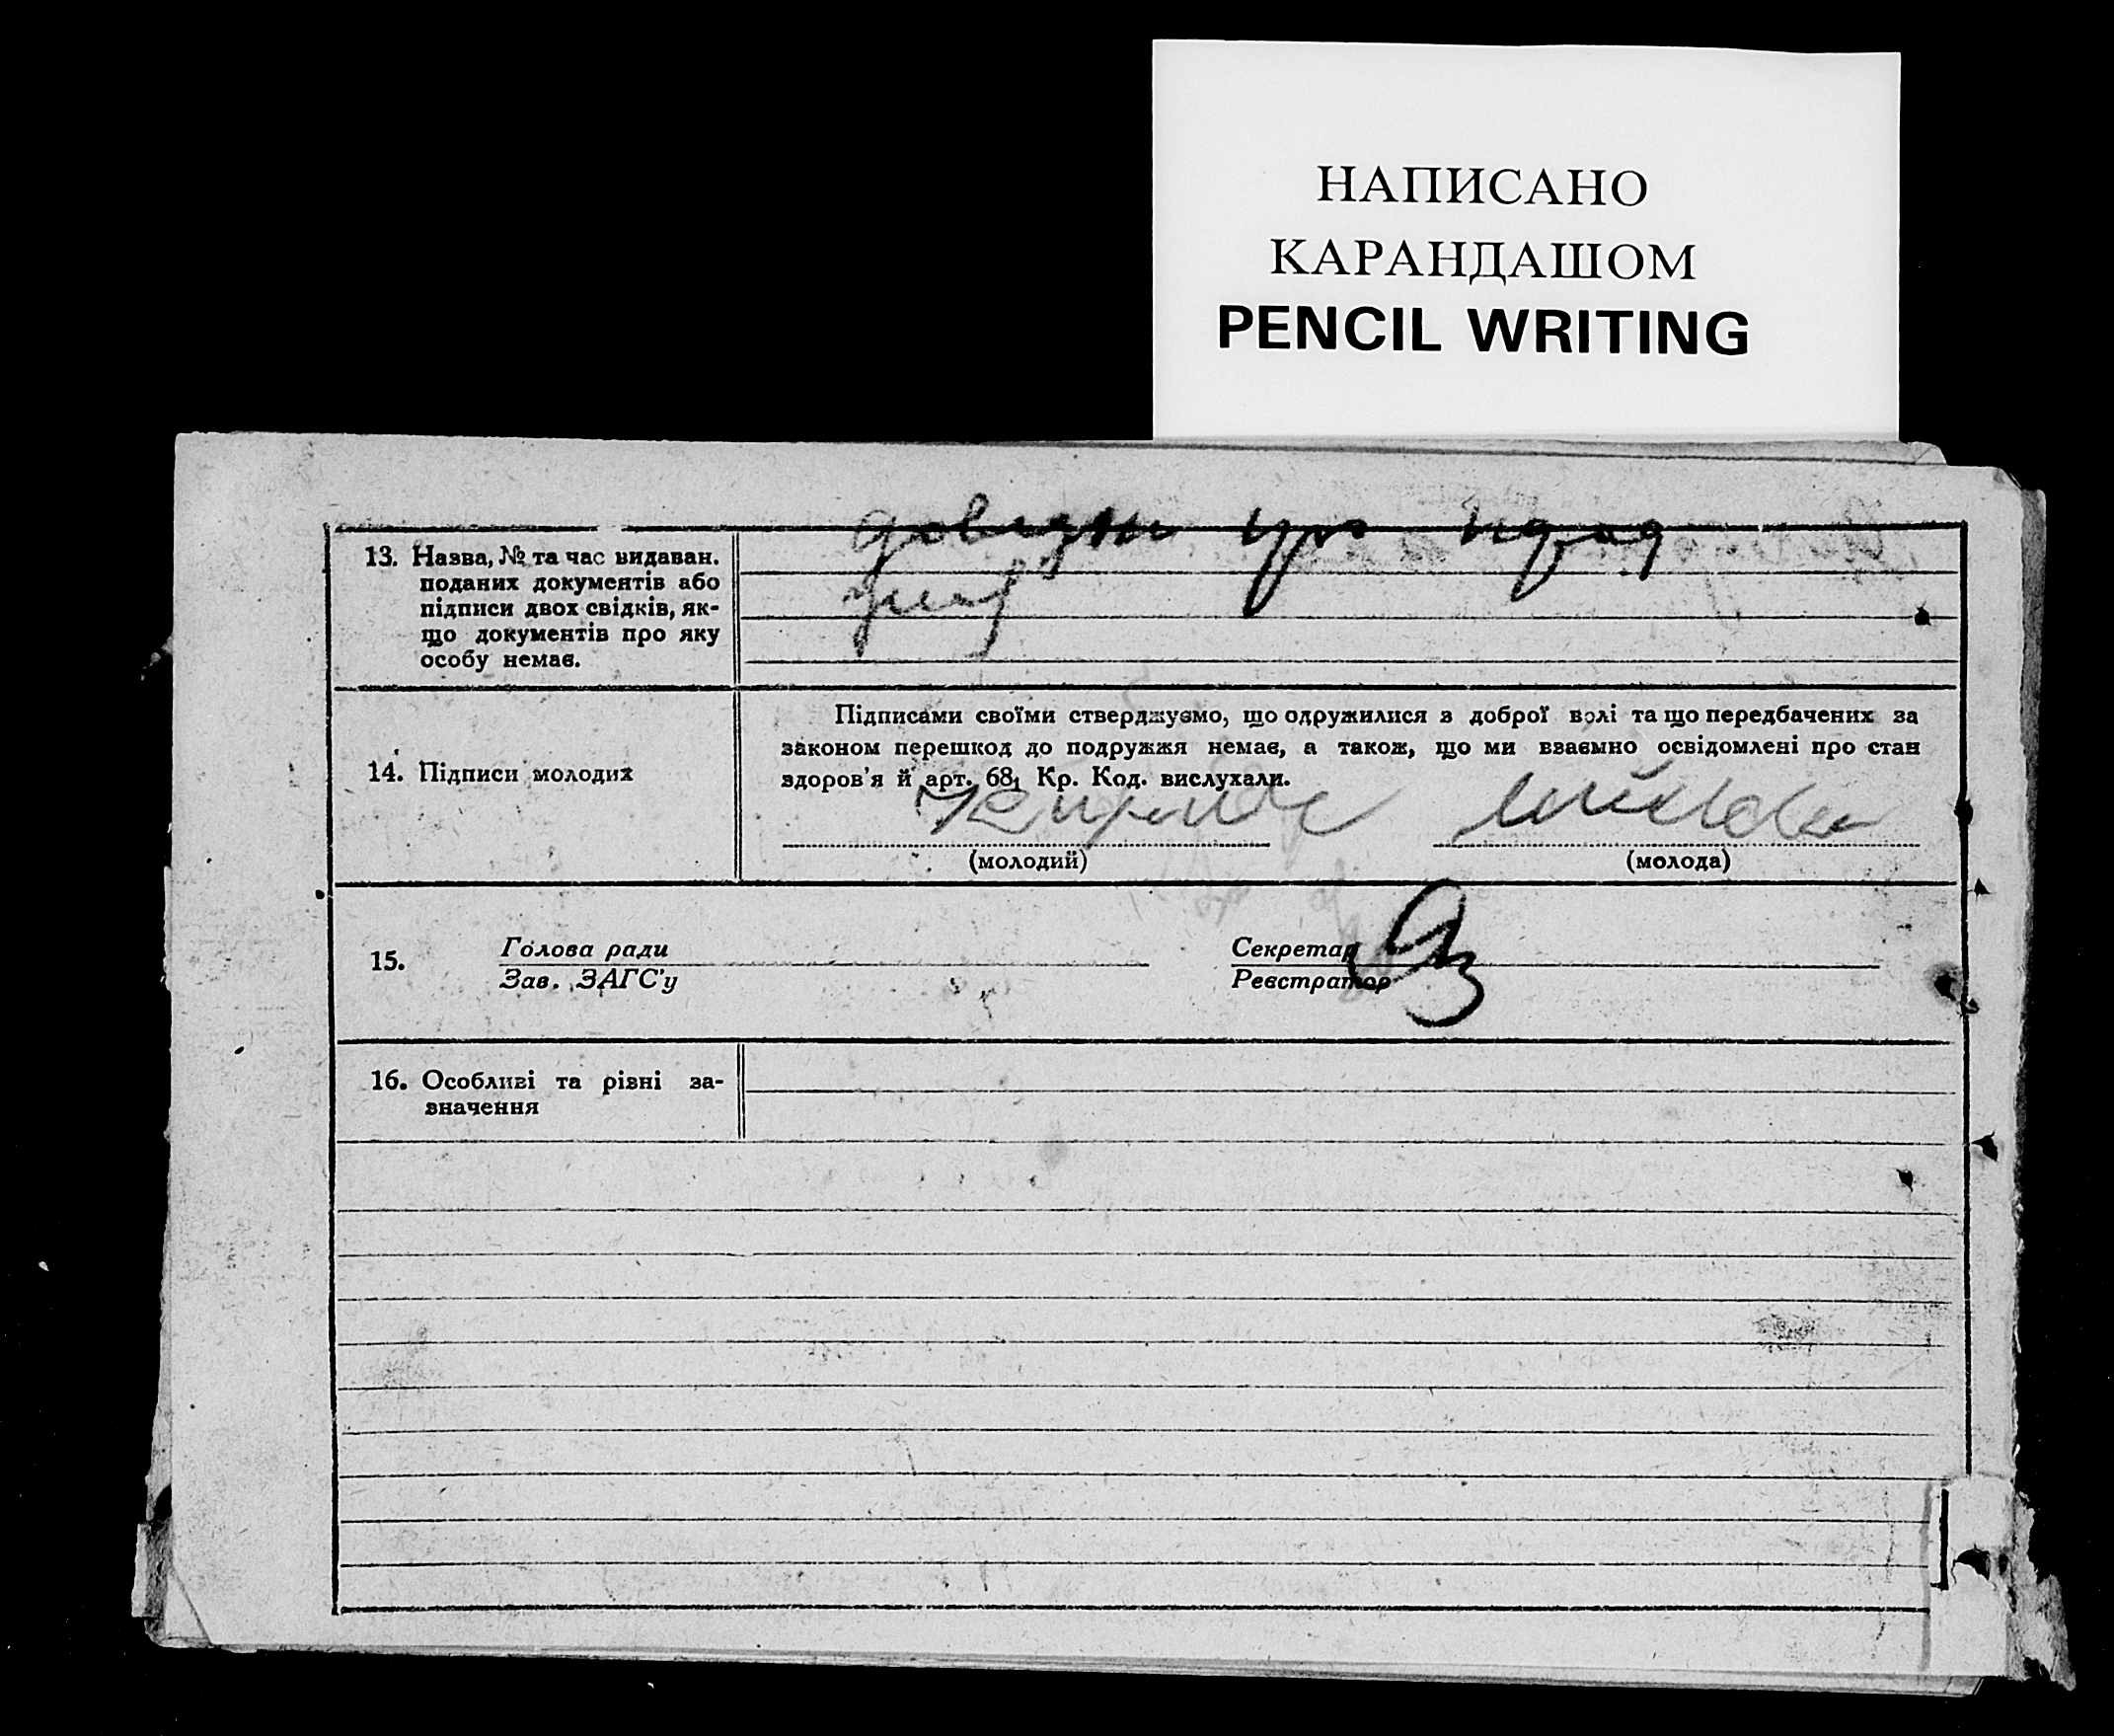 НАПИСАНО
КАРАНДАШОМ
PENCIL WRITING
довідки про
13. Назва, № та час видаван.
поданих документів або
підписи двох свідків, як-
що документів про яку
особу немає.
Підписами своїми стверджуємо, що одружилися з доброї волі та що передбачених за
законом перешкод до подружжя немає, а також, що ми взаємно освідомлені про стан
здоров'я й арт. 68₁ Кр. Код. вислухали.
14. Підписи молодих
(молодий) (молода)
15. Голова ради Секретар
Зав. ЗАГС'у Реєстратор
16. Особливі та різні за-
значення